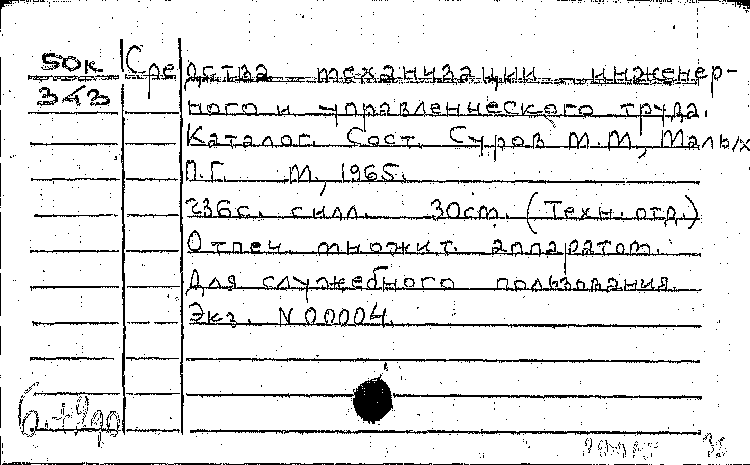 50к Средства механизации инженер-
343 ного и управленческого труда.
Каталог. Сост. Суров М.М., Малых
П.Г. М., 1965.
236с. силл. 30cm. (Техн. отд.)
Отпеч. множит. аппаратом.
Для служебного пользования
Экз. N00004.